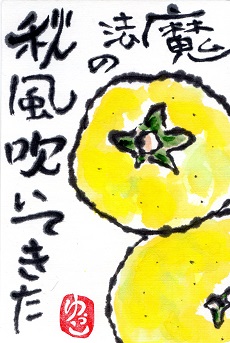 魔法の
秋風吹いてきた